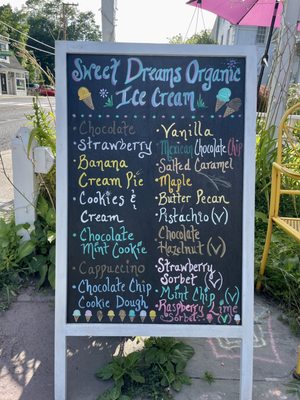 Sweet Dreams Organic
Ice Cream
Chocolate
Strawberry
Banana
Cream Pie
Cookies &
Cream
Chocolate
Mint Cookie
Cappuccino
Chocolate Chip
Cookie Dough
Vanilla
Mexican Chocolate Chip
Salted Caramel
Maple
Butter Pecan
Pistachio (V)
Chocolate
Hazelnut (V)
Strawberry
Sorbet (V)
Mint Chip (V)
Raspberry Lime
Sorbet (V)